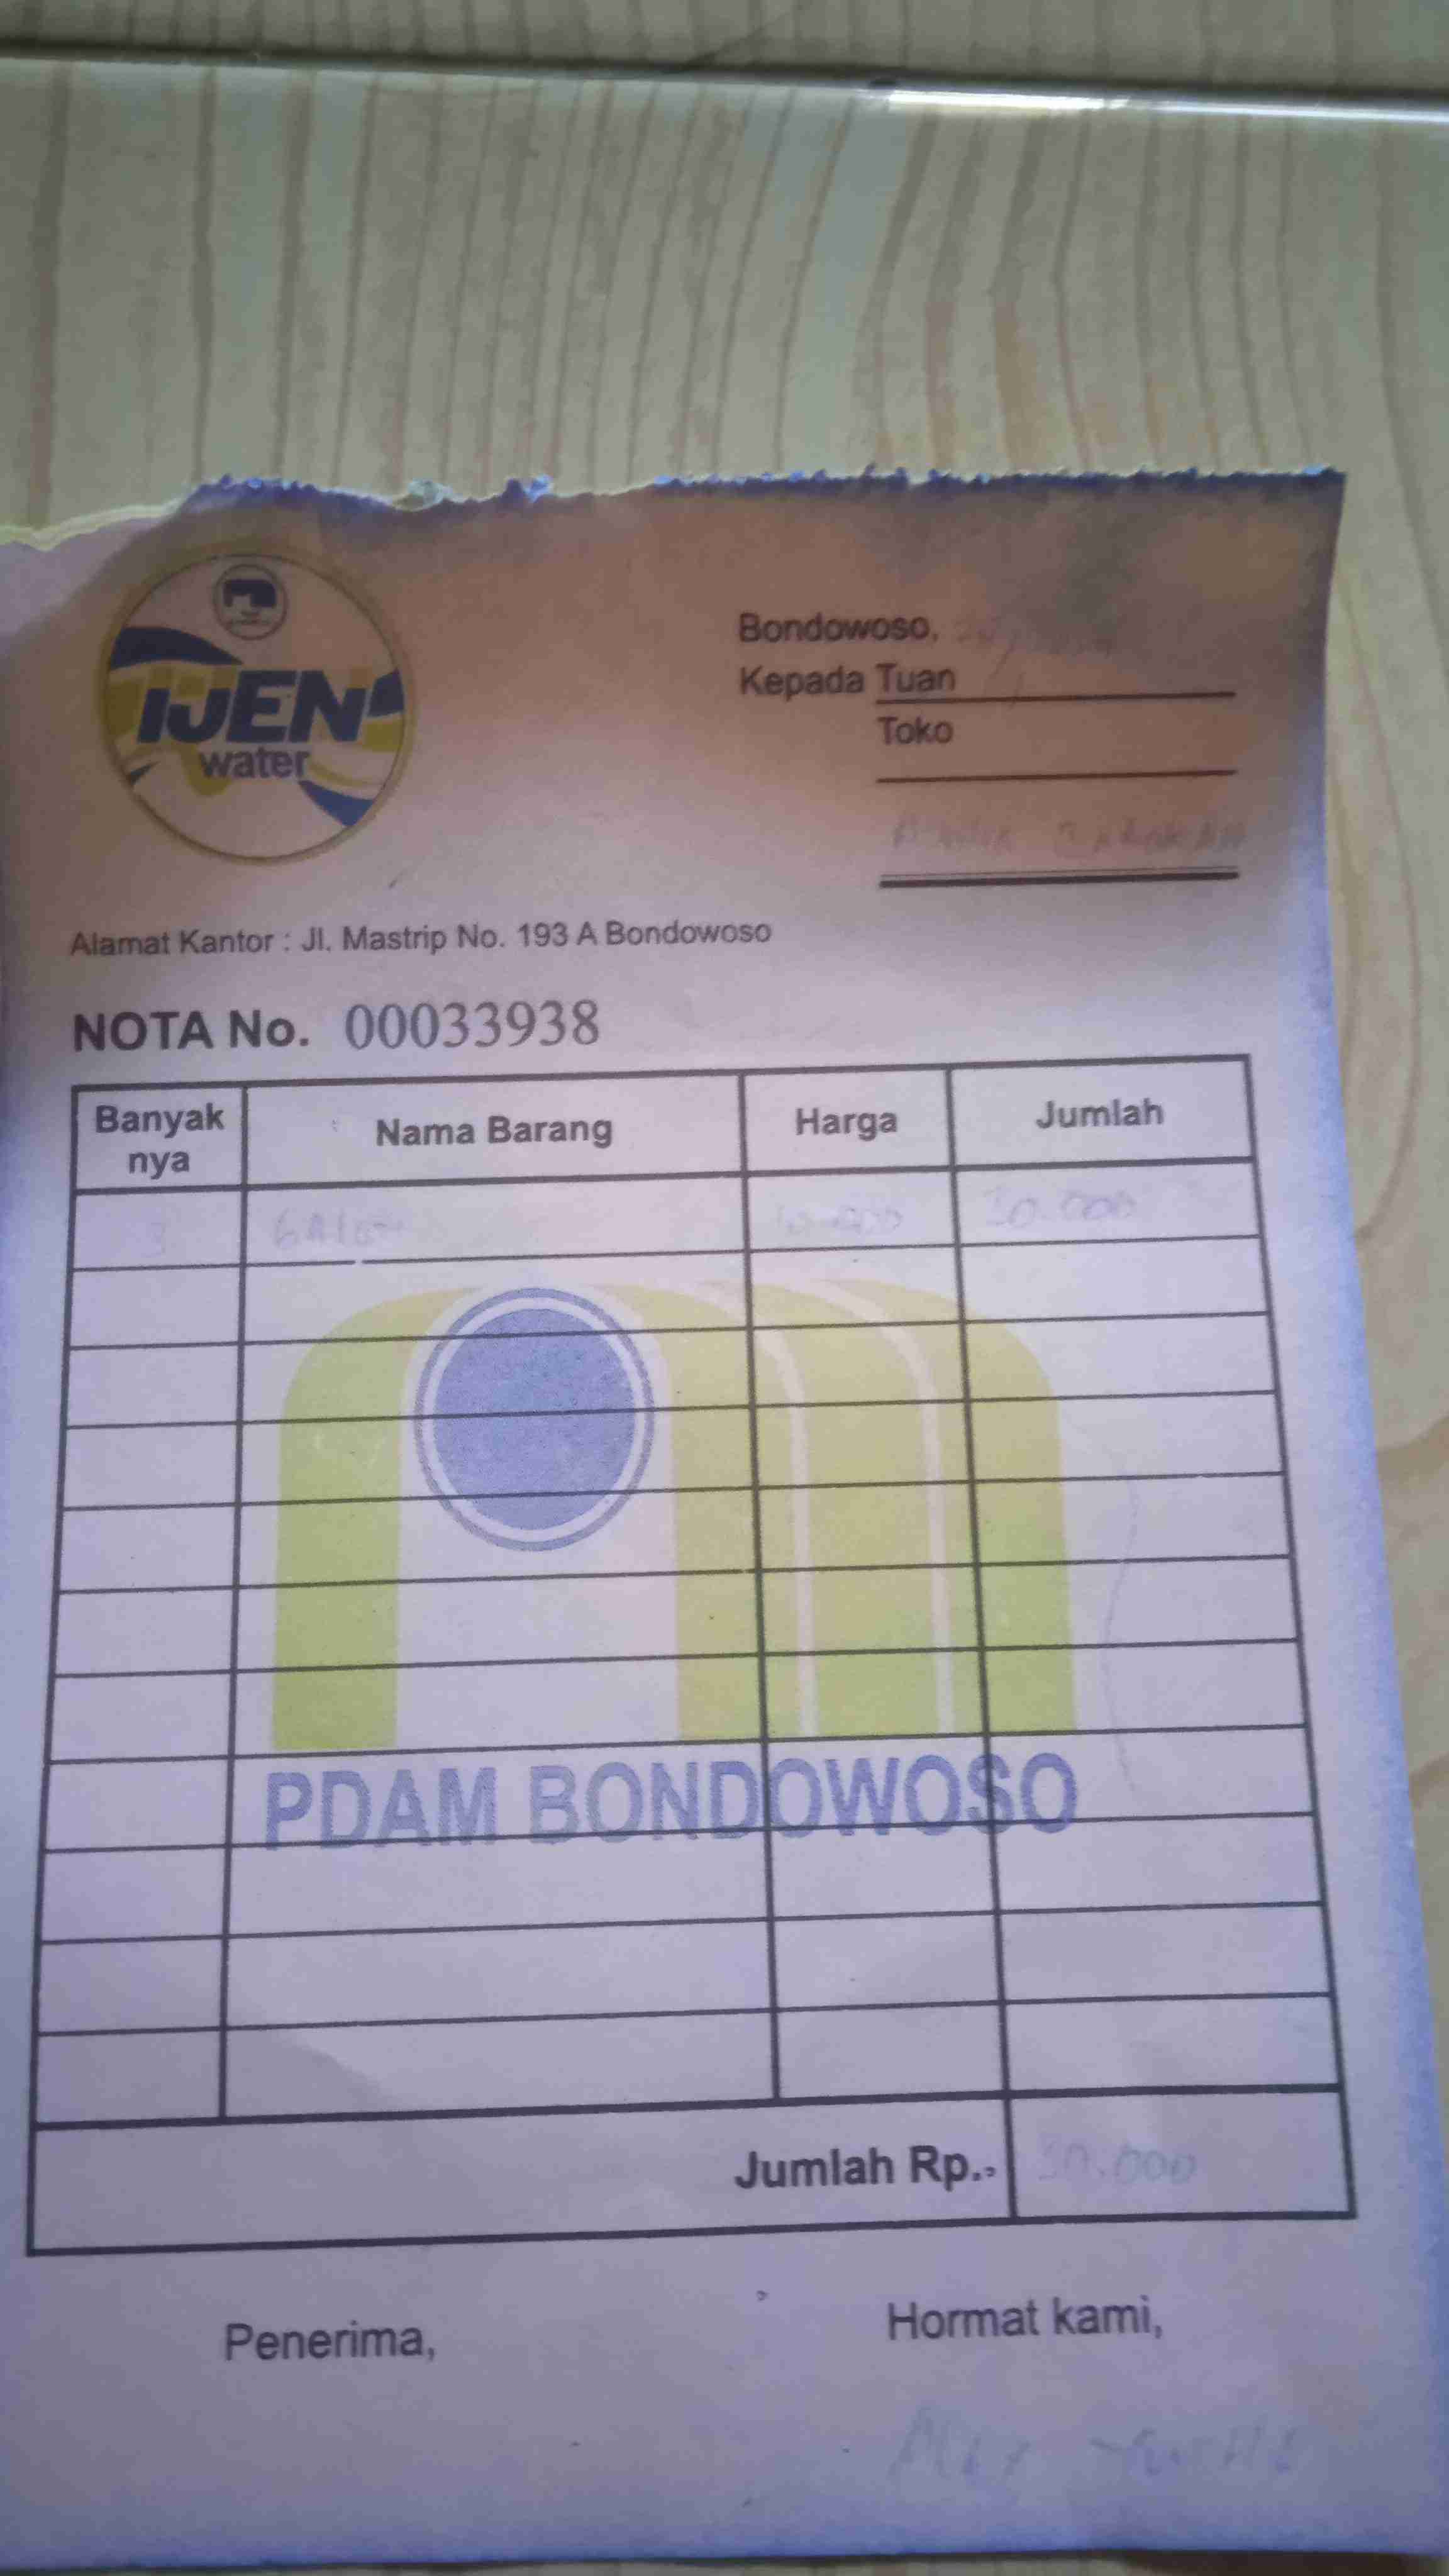 IJEN
water
Bondowoso,
Kepada Tuan
Toko
Alamat Kantor : Jl. Mastrip No. 193 A Bondowoso
NOTA No. 00033938
Banyak nya Nama Barang Harga Jumlah
3 GALON 10.000 30.000
PDAM BONDOWOSO
Jumlah Rp.. 30.000
Penerima, Hormat kami,